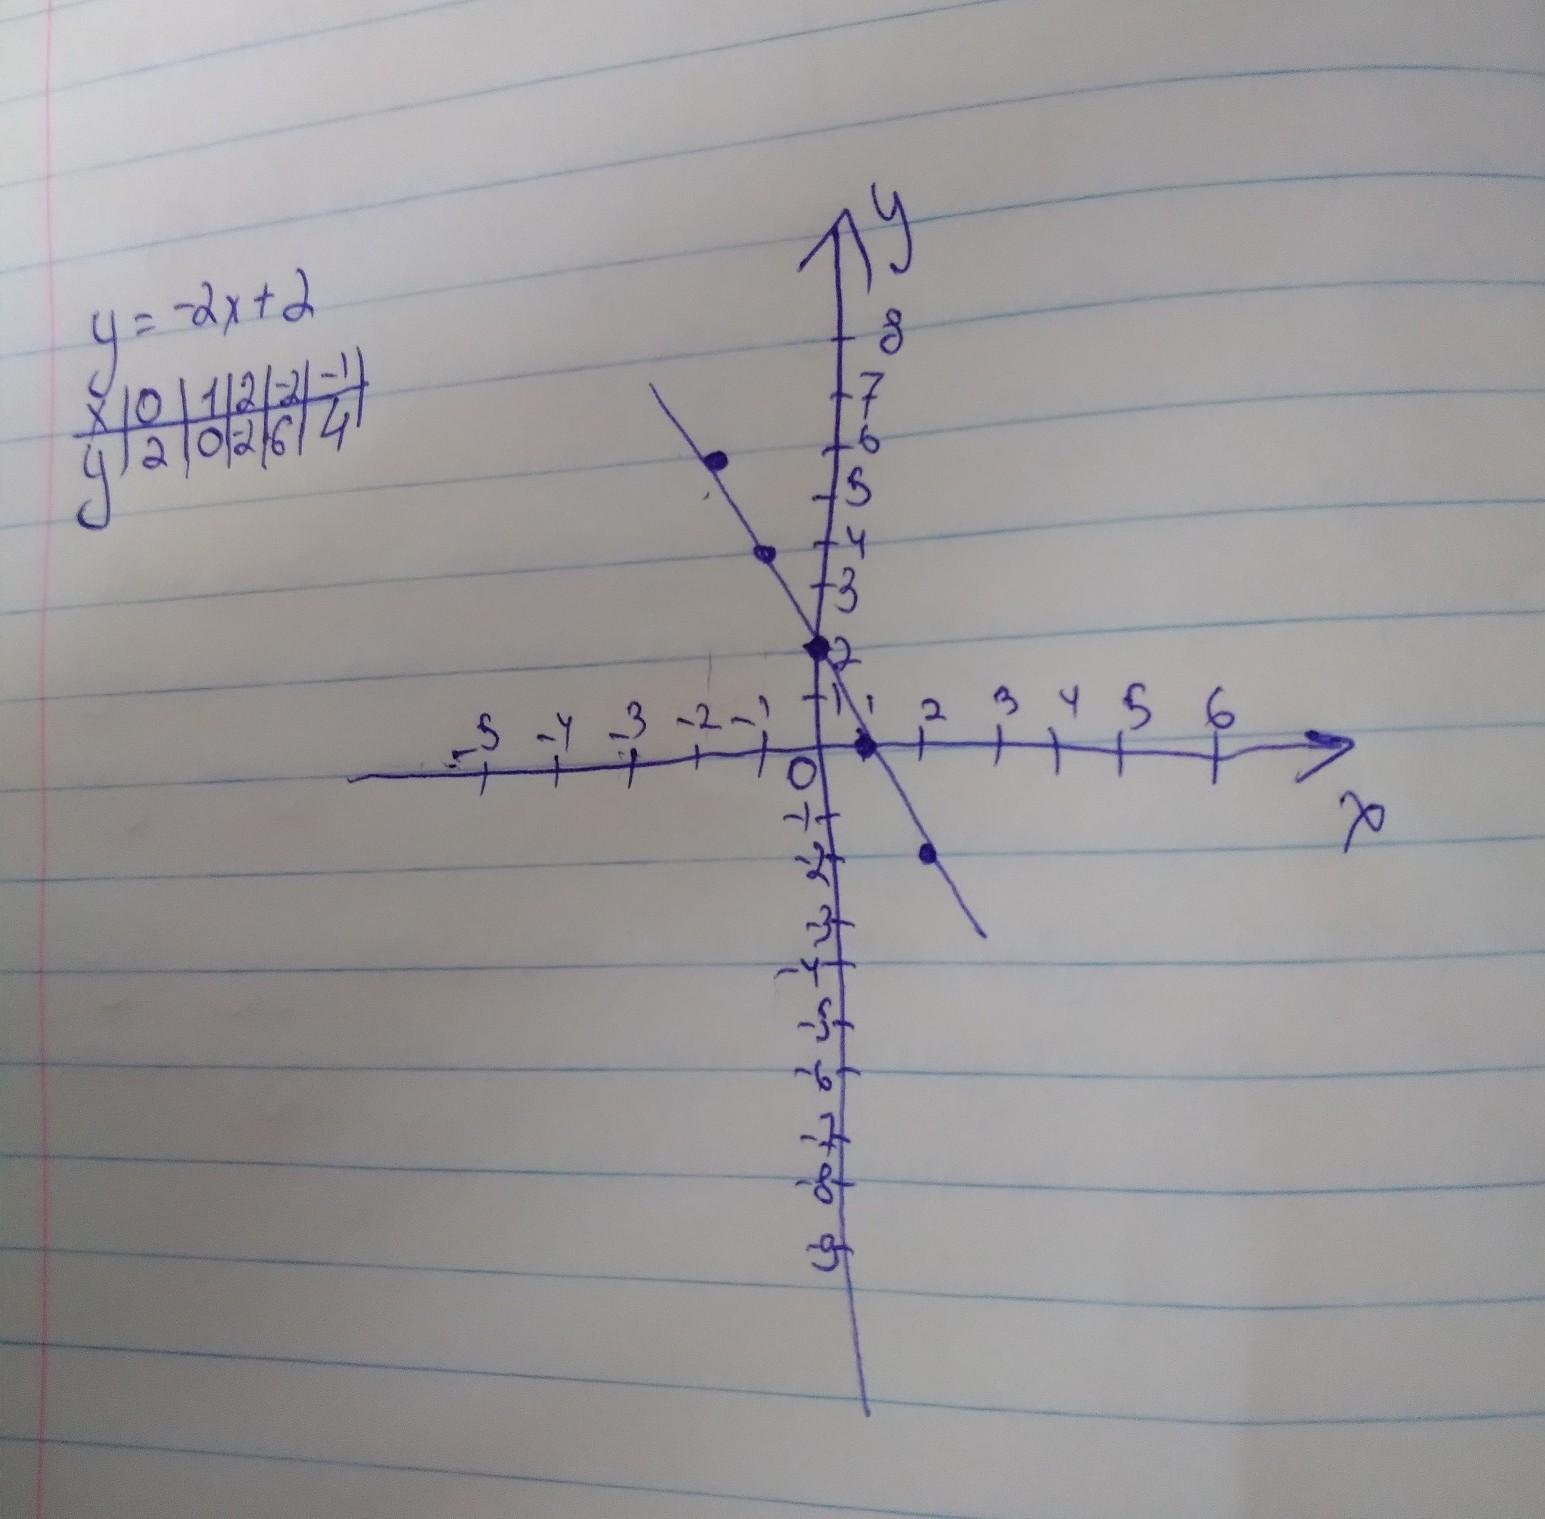 y = -2x+2
x | 0 | 1 | 2 | -2 | -1 |
y | 2 | 0 | -2 | 6 | 4 |
y
8
7
6
5
4
3
2
1
-5 -4 -3 -2 -1 1 2 3 4 5 6
0
x
-1
-2
-3
-4
-5
-6
-7
-8
-9